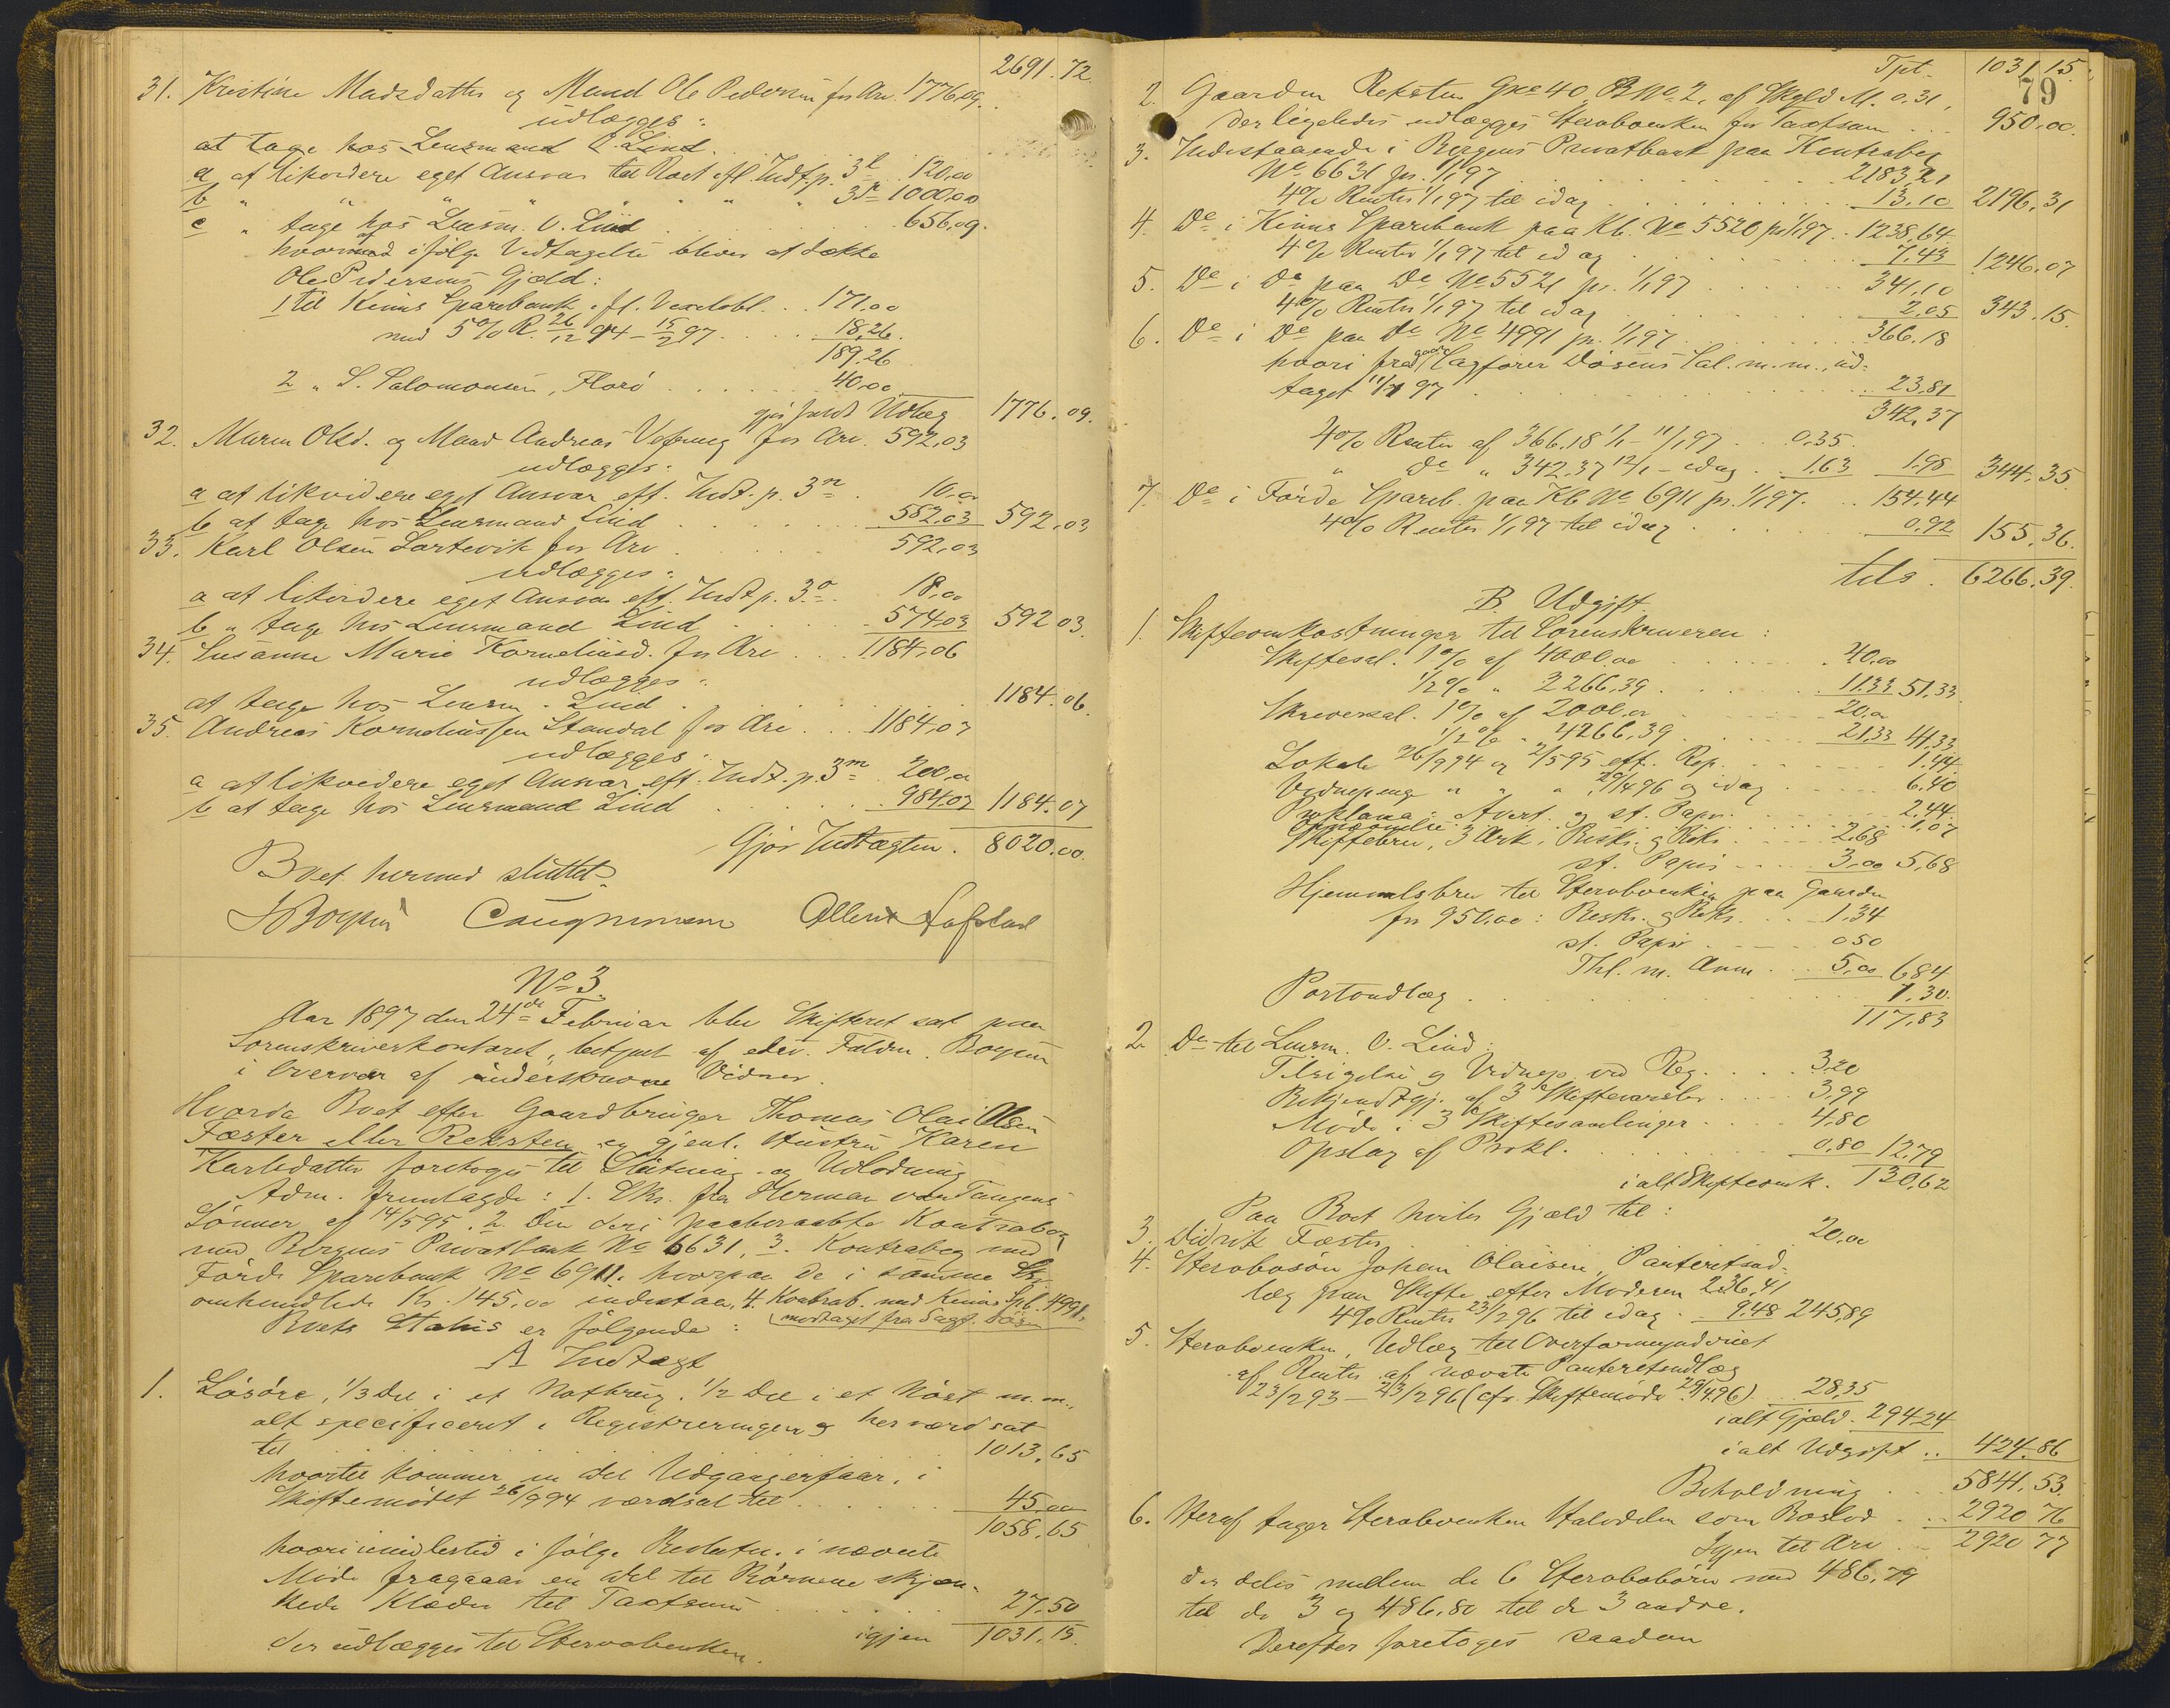 2691.72.
31. Kristine Madsdatter og Mand Ole Pedersen for Arv. 1776,09.
udlægges:
at tage hos Lensmand O Lind
a at likvidere eget Ansvar til Boet efl. Indt. p. 3 l 120,00
b " " " " " " 3 k 1000,00
c " tage hos Lensm. O. Lind 656,09.
hvoraf ifølge Vedtagelse bliver at dække
Ole Pedersens Gjæld:
1 til Kinns Sparebank efl. Vexelobl. 171,00
med 5% R. 26/12 94 - 15/2 97 18,26.
189,26
2 " S. Salomonsen, Florø 40,00
gjør fuldt Udlæg 1776.09.
32. Maren Olsd. og Mand Andreas Vefring for Arv. 592,03
udlægges:
a at likvidere eget Ansvar eft. Indt. p. 3 n 10,00
b at tage hos Lensmand Lind 582,03 592,03
33. Karl Olsen Sortevik for Arv 592,03
udlægges:
a at likvidere eget Ansvar eft. Indt p. 3 o 18,00
b " tage hos Lensmand Lind 574,03 592 03.
34. Susanne Marie Korneliusd. for Arv 1184,06
udlægges:
at tage hos Lensm. Lind 1184.06.
35. Andreas Korneliussen Standal for Arv 1184,07
udlægges:
a at likvidere eget Ansvar eft. Indt. p. 3 m 200,00
b at tage hos Lensmand Lind 984,07 1184.07
Gjør Indtægten. 8020.00.
Boet hermed sluttet.
No 3.
Aar 1897 den 24de Februar blev Skifteret sat paa
Sorenskriverkontoret, betjent af edsv. Fuldm. Boyesen
i Overvær af underskrevne Vidner.
Hvorda Boet efter Gaardbruger Thomas Olai Olsen
Fæster eller Reksten og gjenl. Hustru Karen
Karlsdatter foretoges til Slutning og Udlodning
Adm. fremlagde: 1. Skr. fra Herman von Tangens
Sønner af 14/5 95. 2. Den deri paaberaabte Kontrabog
med Bergens Privatbank No 6631, 3. Kontrabog med
Førde Sparebank No 6911. hvorpaa de i samme Skr.
omhandlede Kr. 145,00 indestaar, 4. Kontrab. med Kinns Spb. 4991.
Boets Status er følgende: modtaget fra Sagf. Døsen
A Indtægt
1. Løsøre, 1/3 Del i et Notbrug, 1/2 Del i et Nøst m.m.,
alt specificeret i Registreringen og her værdsat
til 1013,65
hvortil kommer en del Udgangerfaar, i
Skiftemødet 26/9 94 værdsat til 45,00
1058,65
hvori imidlertid i følge Beslutn. i nævnte
Møde fragaar en del til Børnene skjæn-
kede Klæder til Taxtsum 27,50
igjen 1031.15.
der udlægges til Stervoboenken.
Tpt. 1031 15.
79
2. Gaarden Reksten Gno 40, B No. 2, af Skyld M. 0.31,
der ligeledes udlægges Stervboenken for Taxtsum 950,00.
3. Indestaaende i Bergens Privatbank paa Kontrabog
No 6631 pr. 1/1 97 2183,21
4% Renter 1/1 97 til idag 13,10 2196,31
4. Do i Kinns Sparebank paa Kb. No 5520 pr 1/1 97 1238,64
4% Renter 1/1 97 til idag 7,43 1246.07
5. Do i Do paa Do No 5521 pr. 1/1 97 341,10
4% Renter 1/1 97 til idag 2,05 343.15.
6. Do i Do paa Do No 4991 pr. 1/1 97 366.18
hvori fragaar Sagfører Døsens Sal. m. m., ud-
taget 11/1 97 23,81
342,37
4% Renter af 366.18 1/1 - 11/1 97 0,35
" Do " 342,37 12/1 - idag 1,63 1.98 344.35.
7. Do i Førde Spareb. paa Kb No 6911 pr. 1/1 97. 154,44
4% Renter 1/1 97 til idag 0,92 155.36.
tils. 6266.39.
B. Udgift
1. Skifteomkostninger til Sorenskriveren:
Skiftesal. 1% af 4000,00 40,00
1/2% " 2266,39 11,33 51,33
Skriversal. 1% af 2000,00 20,00
1/2% " 4266,39 21,33 41,33
Lokale 26/9 94 og 2/5 95 eft. Rep. 1,44
Vidnepenge " " " 29/4 96 og idag 6,40
Proklama: Avert. og st. Papir 2,44
1,07
Skiftebrev, 3 Ark. Beskr. og Koks. 2,68
st. Papir 3,00 5,68
Hjemmelsbrev til Stervboenken paa Gaarden
for 950,00: Beskr. og Koks. 1,34
st. Papir 0 50
Thl. m. Anm. 5,00 6,84
Portoudlæg 1,30.
117,83
2. Do til Lensm. O. Lind:
Tilsigelse og Vidnep. ved Reg. 3,20
Bekjendtgj. af 3 Skiftevarsler 3,99
Møde i 3 Skiftesamlinger 4,80
Opslag af Prokl. 0,80 12,79
ialt Skifteomk. 130,62
Paa Boet hviler Gjæld til:
3. Didrik Fæster 20,00
4. Stervbosøn Johan Olaisen, Panteretsud-
læg paa Skifte efter Moderen 236,41
4% Renter 23/2 96 til idag 9,48 245,89
5. Stervboenken, Udlæg til Overformynderiet
af Renter af nævnte Panteretsudlæg
23/2 93 - 23/2 96 (cfr. Skiftemøde 29/4 96) 28,35
ialt Gjæld. 294,24
ialt Udgift 424.86
Beholdning 5841,53.
6. Heraf tager Stervboenken Halvdelen som Boslod 2920 76
Igjen til Arv 2920 77
der deles mellem de 6 Stervbobørn med 486,79
til de 3 og 486,80 til de 3 andre.
Derefter foretoges saadan